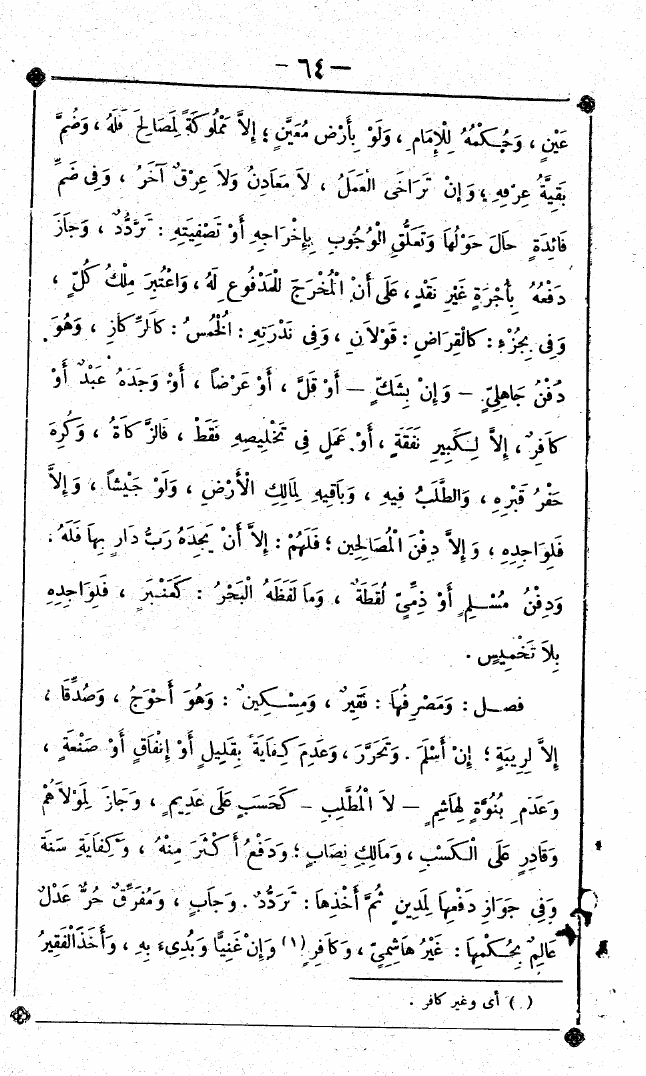 — ٦٤ —
عَيْنٍ ، وَحُكْمُهُ لِلْإِمَامِ ، وَلَوْ بِأَرْضِ مُعَيَّنٍ ؛ إِلاَّ مَمْلُوكَةً لِمَصَالِحَ فَلَهُ ، وَضُمَّ
بَقِيَّةُ عِرْقِهِ ، وَإِنْ تَرَاخَى الْعَمَلُ ، لاَ مَعَادِنُ وَلاَ عِرْقٌ آخَرُ ، وَفِى ضَمِّ
فَائِدَةٍ حَالَ حَوْلُهَا وَتَعَلُّقِ الْوُجُوبِ بِإِخْرَاجِهِ أَوْ تَصْفِيَتِهِ : تَرَدُّدٌ ، وَجَازَ
دَفْعُهُ بِأُجْرَةٍ غَيْرِ نَقْدٍ ، عَلَى أَنَّ الْمُخْرَجَ لِلْمَدْفُوعِ لَهُ ، وَاعْتُبِرَ مِلْكُ كُلٍّ ،
وَفِى بِجُزْءٍ : كَالْقِرَاضِ : قَوْلاَنِ ، وَفِى نَدْرَتِهِ : الْخُمُسُ : كَالرِّكَازِ ، وَهُوَ
دِفْنُ جَاهِلِيٍّ — وَإِنْ بِشَكٍّ — أَوْ قَلَّ ، أَوْ عَرْضاً ، أَوْ وَجَدَهُ عَبْدٌ أَوْ
كَافِرٌ ، إِلاَّ لِكَبِيرِ نَفَقَةٍ ، أَوْ عَمَلٍ فِى تَخْلِيصِهِ فَقَطْ ، فَالزَّكَاةُ ، وَكُرِهَ
حَفْرُ قَبْرِهِ ، وَالطَّلَبُ فِيهِ ، وَبَاقِيهِ لِمَالِكِ الْأَرْضِ ، وَلَوْ جَيْشاً ، وَإِلاَّ
فَلِوَاجِدِهِ ، وَإِلاَّ دِفْنَ الْمُصَالِحِين ؛ فَلَهُمْ : إِلاَّ أَنْ يَجِدَهُ رَبُّ دَارٍ بِهَا فَلَهُ .
وَدِفْنُ مُسْلِمٍ أَوْ ذِمِّيٍّ لُقَطَةٌ ، وَمَا لَفَظَهُ الْبَحْرُ : كَعَنْبَرٍ ، فَلِوَاجِدِهِ
بِلاَ تَخْمِيسٍ .
فصل : وَمَصْرِفُهَا : فَقِيرٌ ، وَمِسْكِينٌ : وَهُوَ أَحْوَجُ ، وَصُدِّقَا ،
إِلاَّ لِرِيبَةٍ ؛ إِنْ أَسْلَمَ . وَتَحَرَّرَ ، وَعَدِمَ كِفَايَةً بِقَلِيلٍ أَوْ إِنْفَاقٍ أَوْ صَنْعَةٍ ،
وَعَدَمِ بُنُوَّةٍ لِهَاشِمٍ — لاَ الْمُطَّلِبِ — كَحَسْبٍ عَلَى عَدِيمٍ ، وَجَازَ لِمَوْلاَهُمْ
وَقَادِرٍ عَلَى الْكَسْبِ ، وَمَالِكِ نِصَابٍ ؛ وَدَفْعُ أَكْثَرَ مِنْهُ ، وَكِفَايَةِ سَنَةٍ
وَفِى جَوَازِ دَفْعِهَا لِمَدِينٍ ثُمَّ أَخْذِهَا : تَرَدُّدٌ . وَجَابٍ ، وَمُفَرِّقٌ حُرٌّ عَدْلٌ
عَالِمٌ بِحُكْمِهَا : غَيْرُ هَاشِمِيٍّ ، وَكَافِرٍ (١) وَإِنْ غَنِيًّا وَبُدِىءَ بِهِ ، وَأَخَذَ الْفَقِيرُ
( ) أى وغير كافر .